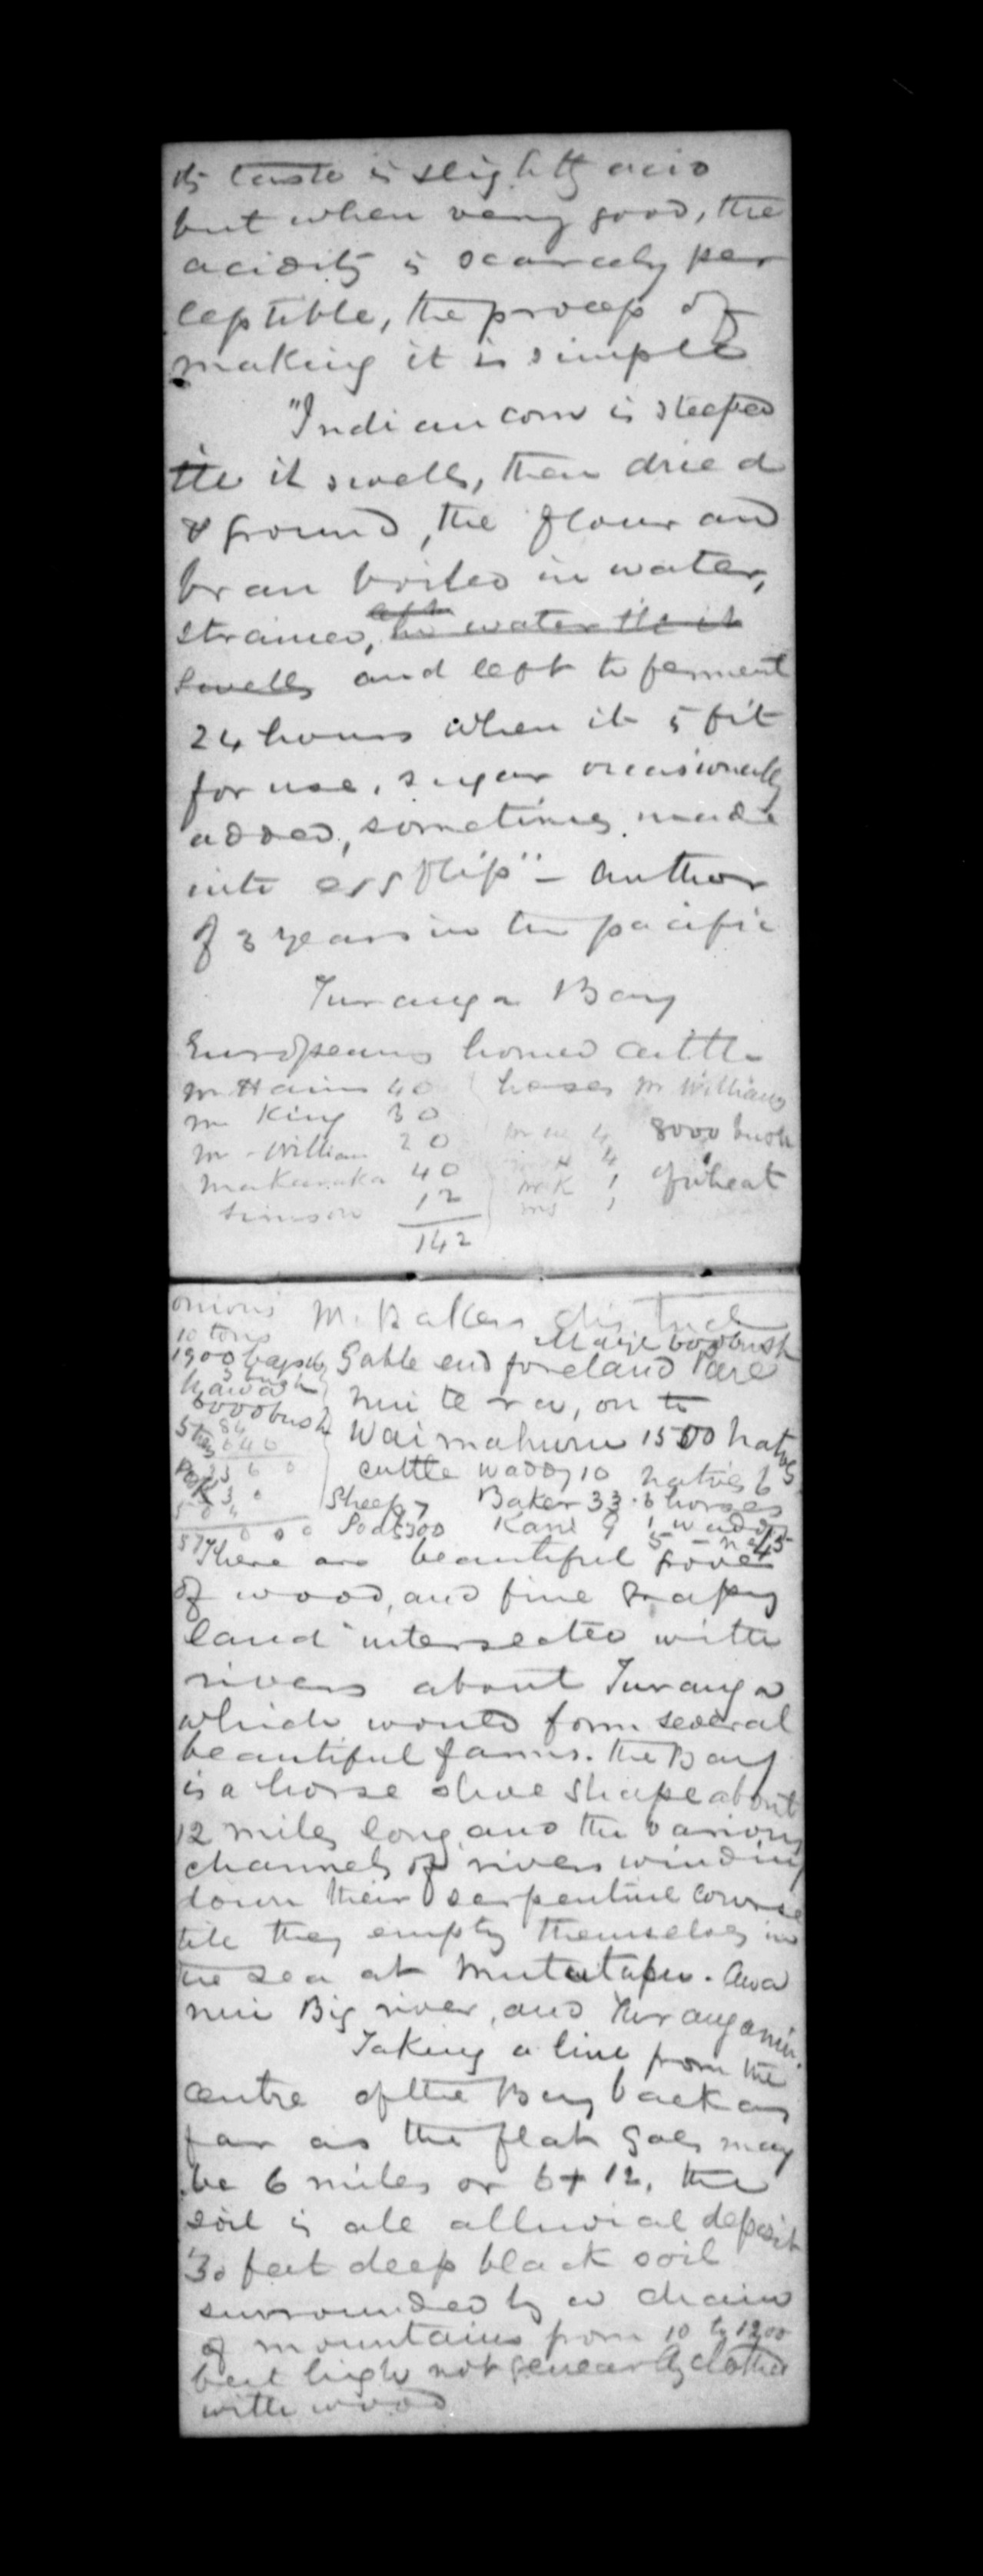 its taste is slightly acid
but when very good, the
acidity is scarcely per
ceptible, the process of
making it is simple
"Indian corn is steeped
till it swells, then dried
& ground, the flour and
bran boiled in water,
strained, water till it
swells and left to ferment
24 hours when it is fit
for use, sugar occasionally
added, sometimes made
into egg flip" – author
of 3 years in the pacific
Turanga Bay
Europeans horned cattle
Mr Harris 40 horses Mr Williams
Mr King 30
Mr William 20 Mr W 4 8000 bush
Makaraka 40 Mr H 4 of wheat
Simson 12 Mr K 1
142
onions Mr Bakers district
10 tons Maize 600 bush
1900 Gable end foreland Pare
nui te ra, on to
6000 bush Waimahuru 1500 natives
cattle Waddy 10 natives 6
Pork Sheep 7 Baker 33. 6 horses
Kane 9 1 Waddy
There are beautiful groves
of wood, and fine grassy
land intersected with
rivers about Turanga
which would form several
beautiful farms. The Bay
is a horse shoe shape about
12 miles long, and the various
channels of rivers winding
down their serpentine course
till they empty themselves in
the sea at Mututapu. Awa
nui Big river, and Turanganui.
Taking a line from the
centre of the Bay back as
far as the flat goes may
be 6 miles or 6 + 12, the
soil is all alluvial deposit
30 feet deep black soil
surrounded by a chain
of mountains from 10 to 1200
feet high not generally clothed
with wood